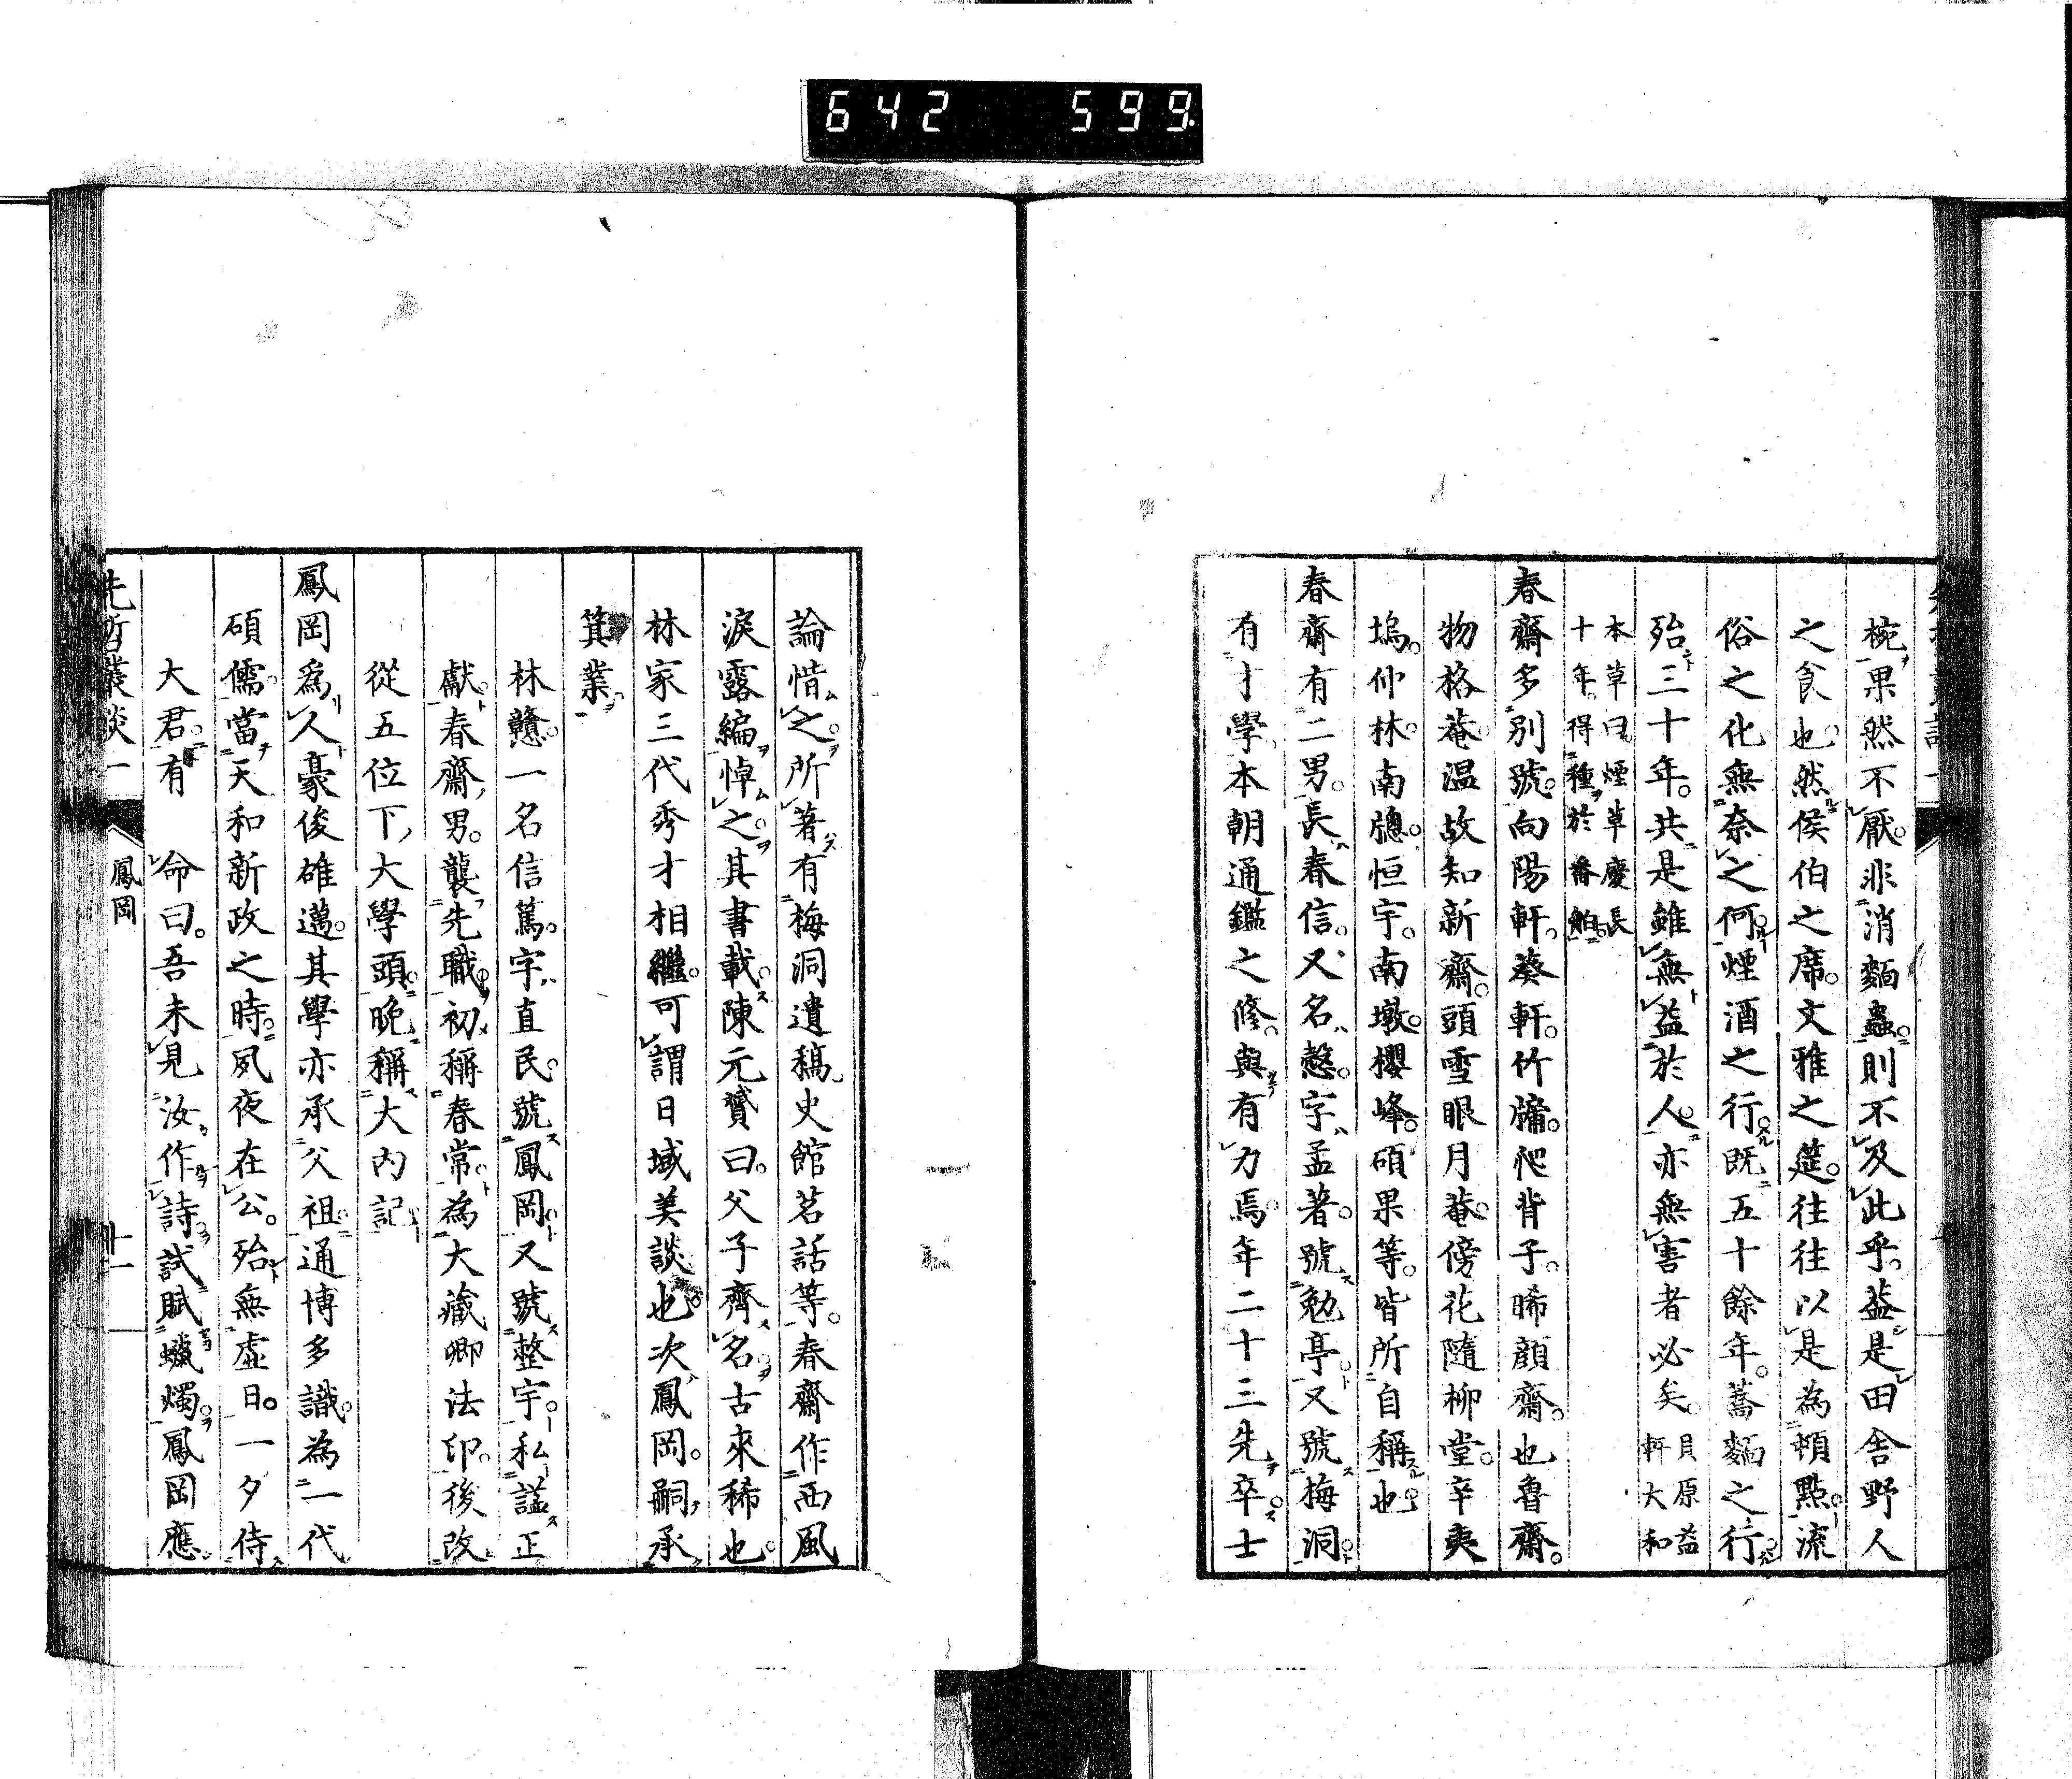 642 599
椀果然不厭。非消麵蟲。則不及此乎。蓋是田舍野人
之食也。然侯伯之席。文雅之筵。往往以是為頓點。流
俗之化無奈之何。煙酒之行。既五十餘年。蕎麵之行。
殆三十年。共是雖無益於人。亦無害者必矣。貝原益軒大和
本草曰。煙草慶長十年。得種於番舶。
春齋多別號。向陽軒。葵軒。竹牖。爬背子。晞顔齋。也魯齋。
物格菴。溫故知新齋。頭雪眼月菴。傍花隨柳堂。辛夷
塢。仲林。南牕。恒宇。南墩。櫻峰。碩果等。皆所自稱也。
春齋有二男。長春信。又名愨。字孟著。號勉亭。又號梅洞。
有才學。本朝通鑑之修。與有力焉。年二十三先卒。士
論惜之。所著有梅洞遺稿。史館茗話等。春齋作西風
淚露編悼之。其書載。陳元贇曰。父子齊名。古來稀也。
林家三代秀才相繼。可謂日域美談也。次鳳岡。嗣承
箕業。
林戇。一名信篤。字直民。號鳳岡。又號整宇。私謚正
獻。春齋男。襲先職。初稱春常。為大藏卿法印。後改
從五位下大學頭。晚稱大內記
鳳岡為人豪俊雄邁。其學亦承父祖。通博多識。為一代
碩儒。當天和新政之時。夙夜在公。殆無虛日。一夕侍
大君。有 命曰。吾未見汝作詩。試賦蠟燭。鳳岡應
先哲叢談一
鳳岡
十一